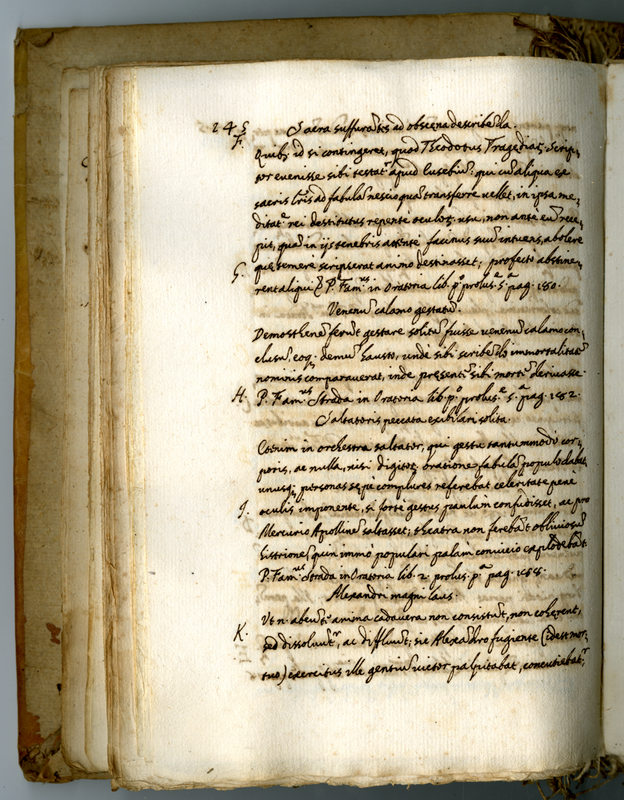 245 Sacra suffuratis ad obscena describe͂da.
F. Quib9 id si contingeret, quod Theodotus Tragediaꝝ Scrip:
tor evenisse sibi testatr apud Eusebiu͂: qui cu͂ aliqua ex
sacris lr͂is ad fabula͂ nescio qua͂ transferre vellet, in ipsa me:
ditate rei destitutus repente oculoꝝ usu, non ante eu͂ rece:
pit, qua͂ in ijs tenebris attente facinus suu͂ intuens, abolere
que temere scripserat animo destinasset; profecto abstine:
G. rent aliqui & P. Famus in Oratoria lib. po prolus.e 5.a pag. 180.
Venenu͂ calamo gestatu͂.
Demosthene͂ feru͂t gestare solitu͂ fuisse venenu͂ calamo con:
clusu͂, eoq; demu͂ hausto, unde sibi scribe͂do immortalitate͂
nominis comparaverat, inde presenti͂ sibi morte͂ derivasse.
H. P. Famus Strada in Oratoria lib. po prolus.e 5.a pag. 182.
Saltatoris peccata exibilari solita.
Etenim in orchestra saltator, qui gestu tantummodo cor:
poris, ac nulla, nisi digitoꝝ oratione fabula͂ populo dabat,
unusq; personas sepe complures referebat celeritate pene
J. oculis imponente, si forte gestus paulum confudisset, ac pro
Mercurio Apolline͂ saltasset; theatra non fereba͂t obliviosu͂
histrione͂ quin immo populari palam convicio explodeba͂t.
P. Famus Strada in Oratoria lib. 2. prolus. pa pag. 188.
Alexandri magni laus.
K. Ut n. abeu͂te anima cadavera non consistu͂t, non coherent,
sed dissolvu͂tr, ac difflu͂ut; sic Alexa͂dro fugiente (idest mor:
tuo) exercitus ille gentiu͂ victor palpitabat, concutiabatr,